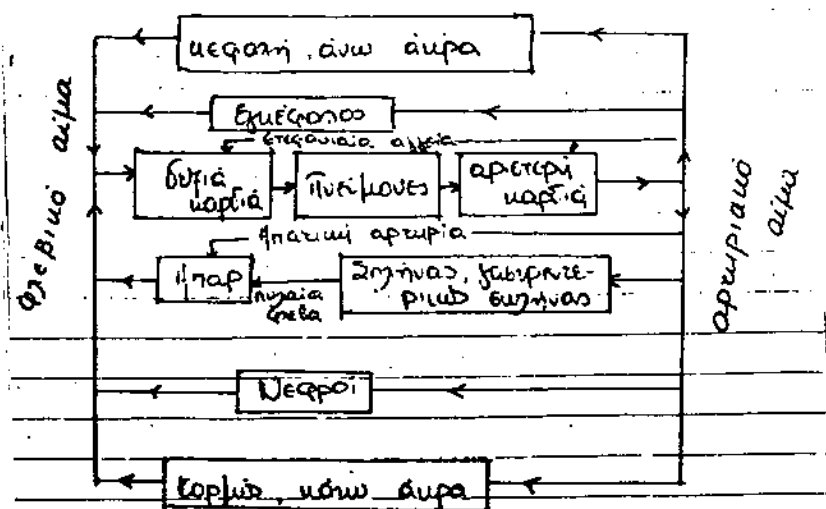 κεφαλή, άνω άκρα
εγκέφαλος
στεφανιαία αγγεία
δεξιά
καρδιά
πνεύμονες
αριστερή
καρδιά
ηπατική αρτηρία
ήπαρ
πυλαία
φλέβα
Σπλήνας, γαστρεντε-
ρικός σωλήνας
Νεφροί
κορμός, κάτω άκρα
φλεβικό αίμα
αρτηριακό
αίμα